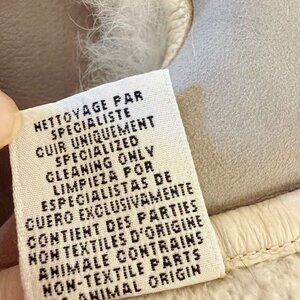 NETTOYAGE PAR
SPECIALISTE
CUIR UNIQUEMENT
SPECIALIZED
CLEANING ONLY
LIMPIEZA POR
ESPECIALISTAS DE
CUERO EXCLUSIVAMENTE
CONTIENT DES PARTIES
NON TEXTILES D'ORIGINE
ANIMALE CONTAINS
NON-TEXTILE PARTS
ANIMAL ORIGIN